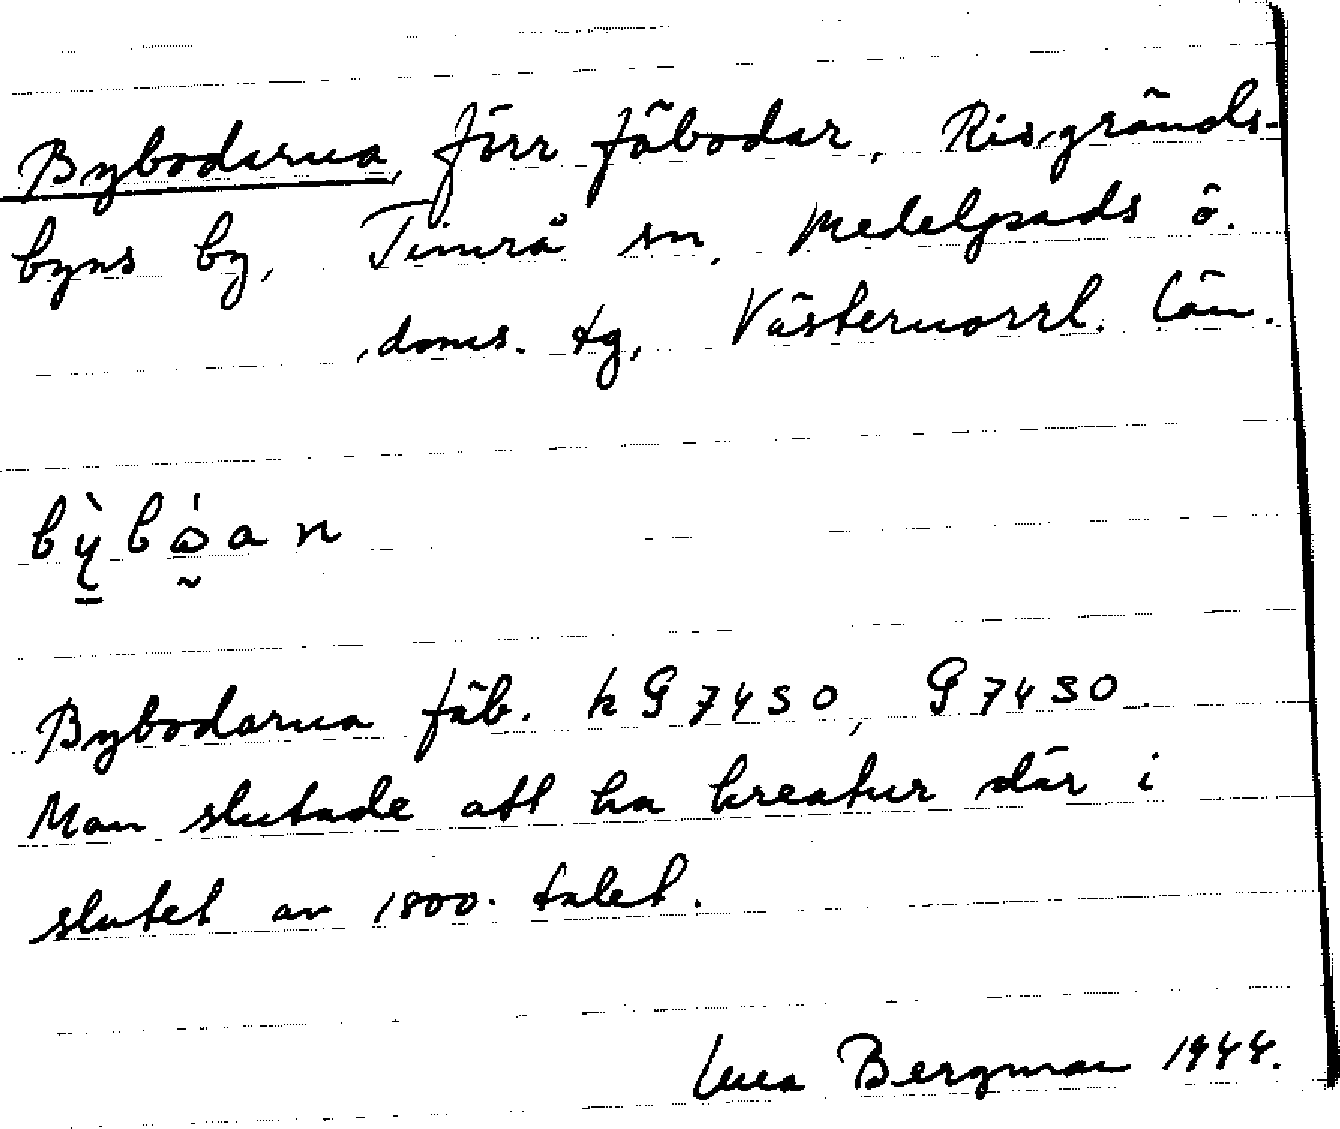 Bybodarna, förr fäbodar, Risgränds-
byns by, Timrå sn, Medelpads ö.
doms. tg, Västernorrl. län.
bỳbǻan
Bybodarna fäb. k G 7450, G 7450.
Man slutade att ha kreatur där i
slutet av 1800-talet.
Bergman 1944.